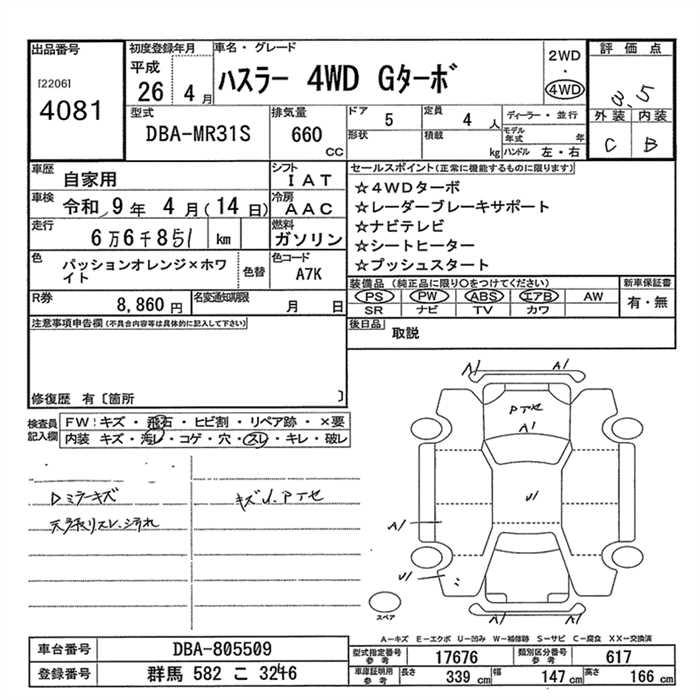 出品番号
[2206]
4081
初度登録年月
平成
26 4月
車名・グレード
ハスラー 4WD Gターボ
2WD
・
4WD
評価点
3.5
外装 内装
C B
型式
DBA-MR31S
排気量
660
CC
ドア 5
形状
定員 4 人
積載 kg
ディーラー・並行
モデル年式 年
ハンドル 左・右
車歴 自家用
シフト IAT
車検 令和 9年 4月(14日)
冷房 AAC
走行 6万6千851 km
燃料 ガソリン
色 パッションオレンジ×ホワイト
色替
色コード A7K
R券 8,860円
名変通知期限 月 日
セールスポイント(正常に機能するものに限ります)
☆4WDターボ
☆レーダーブレーキサポート
☆ナビテレビ
☆シートヒーター
☆プッシュスタート
装備品 (純正品に限り○をつけてください)
PS PW ABS エアB AW
SR ナビ TV カワ
新車保証書
有・無
後日品 取説
注意事項申告欄(不具合内容等は具体的に記入して下さい)
修復歴 有〔箇所 〕
検査員記入欄
FW:キズ・飛石・ヒビ割・リペア跡・×要
内装 キズ・汚レ・コゲ・穴・スレ・キレ・破レ
Dミラーキズ
キズU.PTセ
A1 A1
PTセ
A1
U1
A1
U1
スペア
A-キズ E-エクボ U-凹み W-補修跡 S-サビ C-腐食 XX-交換済
車台番号 DBA-805509
登録番号 群馬 582 こ 3246
型式指定番号 参考 17676
類別区分番号 参考 617
車庫証明用 参考
長さ 339 cm
幅 147 cm
高さ 166 cm